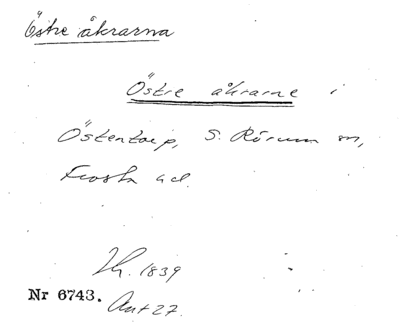 Östre åkrarna
Östre åkrarne i
Östentorp, S. Rörum sn,
Frosta hd.
Lh. 1839
Nr 6743. Ant 27.